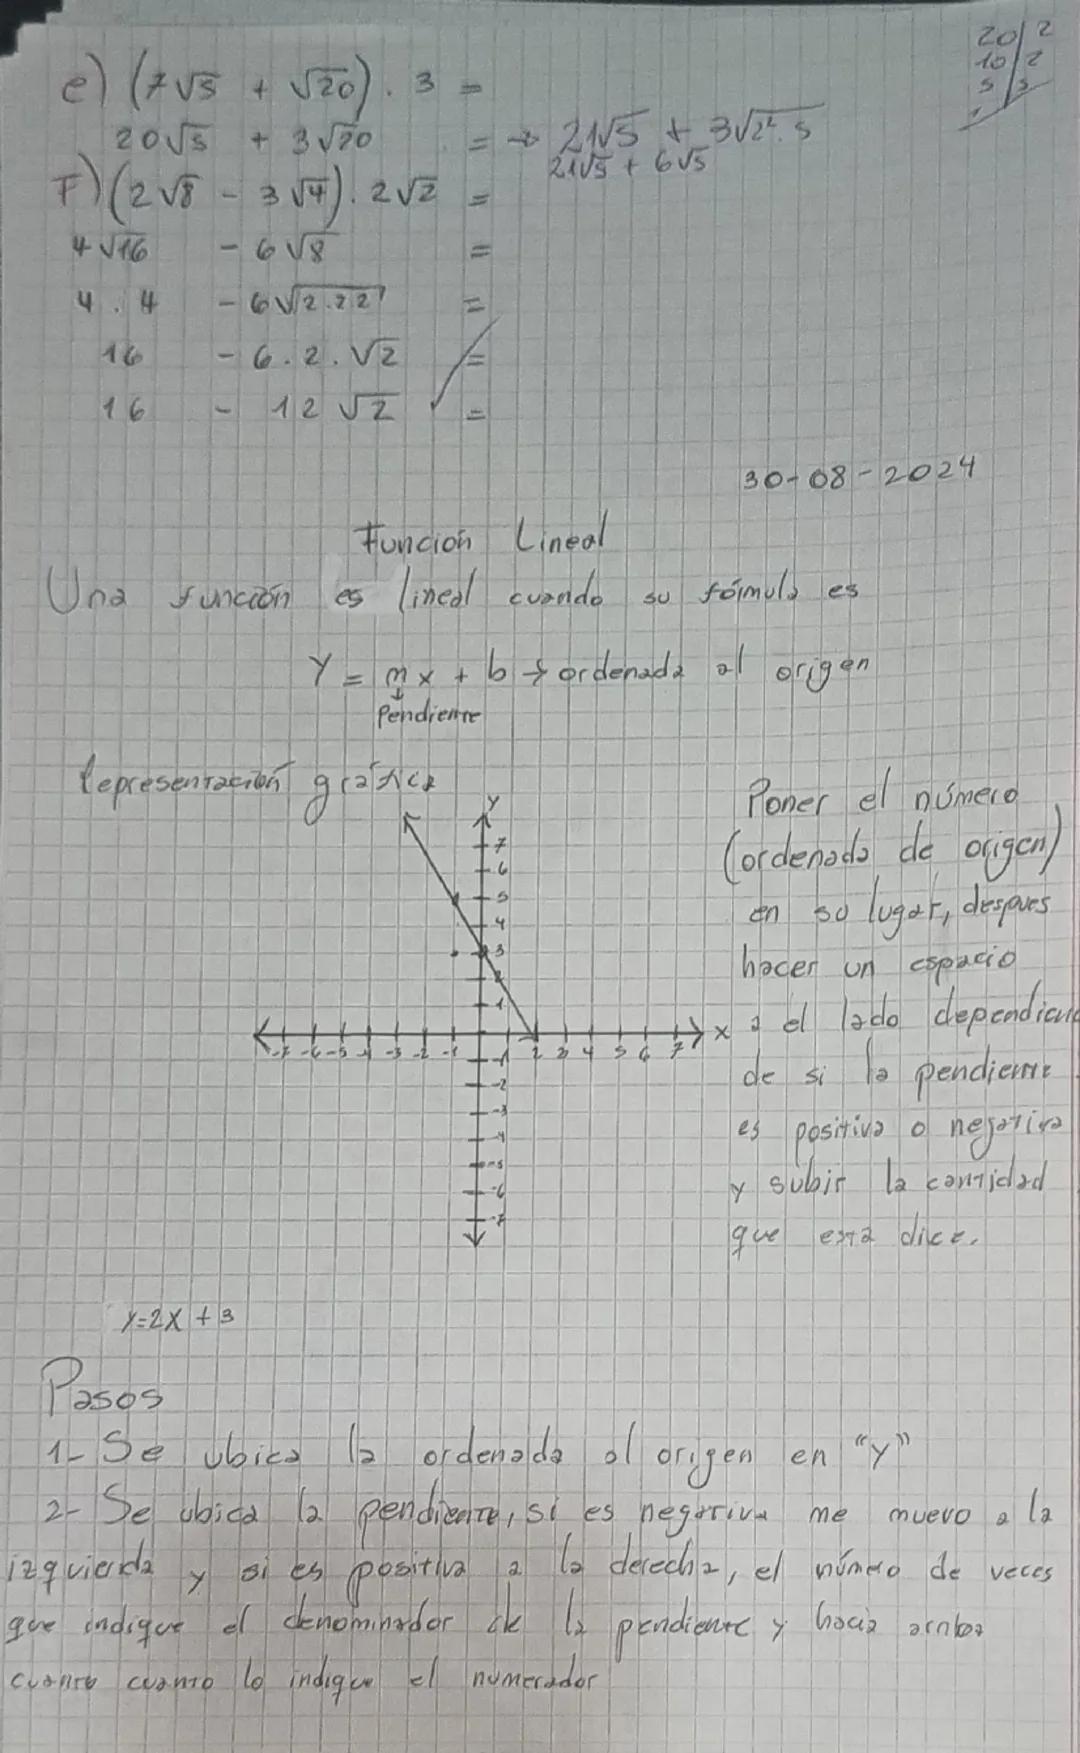 e) (7√5 + √20) . 3 =
20 | 2
10 | 2
5 | 5
1
20√5 + 3√20 = → 21√5 + 3√2². 5
21√5 + 6√5
F) (2√8 - 3√4) . 2√2 =
4√16 - 6√8 =
4 . 4 - 6√2.22 =
16 - 6 . 2 . √2 =
16 - 12√2 =
30-08-2024
Función Lineal
Una función es lineal cuando su fórmula es
Y = mx + b → ordenada al origen
Pendiente
Representación gráfica
Poner el número
(ordenada de origen)
en su lugar, despues
hacer un espacio
a el lado dependien
de si la pendiente
es positiva o negativa
y subir la cantidad
que esta dice.
Y
7
6
5
4
3
2
1
-7 -6 -5 -4 -3 -2 -1 2 3 4 5 6 7 X
-1
-2
-3
-4
-5
-6
-7
Y=2X + 3
Pasos
1- Se ubica la ordenada al origen en "Y"
2- Se ubica la pendiente, si es negativa me muevo a la
izquierda y si es positiva a la derecha, el número de veces
que indique el denominador de la pendiente y hacia arriba
cuanto cuanto lo indique el numerador